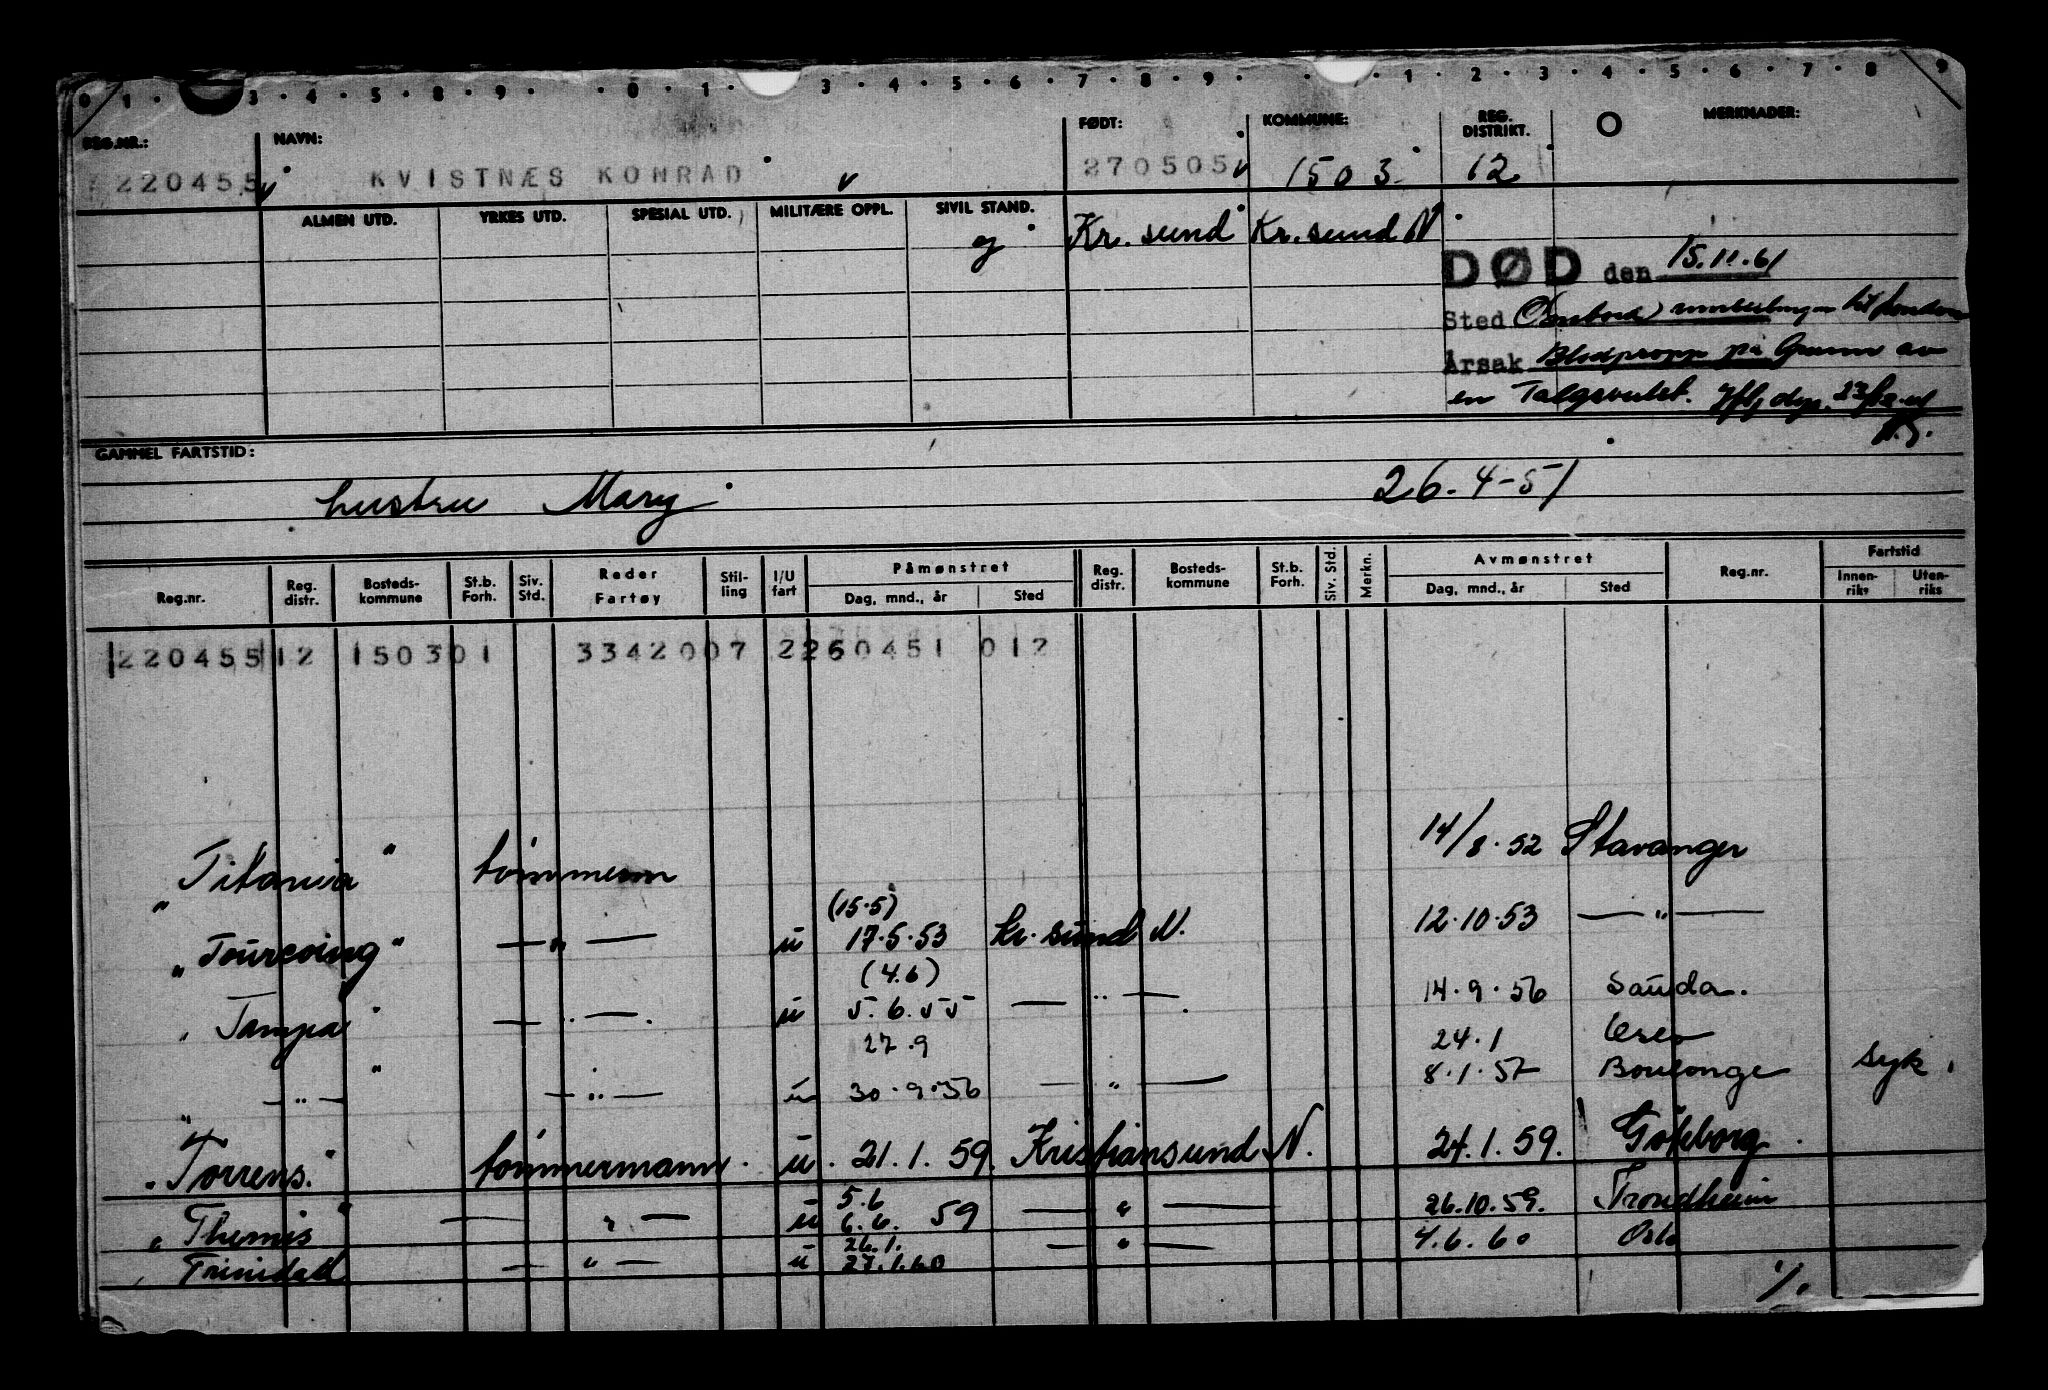 0 1 · 3 · 4 · 5 · 8 · 9 · · 0 · 1 · · 3 · 4 · 5 · 6 · 7 · 8 · 9 · · 1 · 2 · 3 · 4 · 5 · 6 · 7 · 8 · 9
REG.NR.: NAVN: FØDT: KOMMUNE: REG. DISTRIKT. O MERKNADER:
220455 KVISTNÆS KONRAD 270505 1503 12
ALMEN UTD. YRKES UTD. SPESIAL UTD. MILITÆRE OPPL. SIVIL STAND.
g Kr. sund Kr. sund N
DØD den 15.11.61
Sted Ombord til London
Årsak Blodpropp på Grunn av
en
GAMMEL FARTSTID:
hustru Mary 26.4-51
Reg.nr. Reg. distr. Bosteds-kommune St.b. Forh. Siv. Std. Reder Fartøy Stil-ling I/U fart Påmønstret Dag, mnd., år Sted Reg. distr. Bosteds-kommune St.b. Forh. Siv. Std. Merkn. Avmønstret Dag, mnd., år Sted Reg.nr. Fartstid Innen-riks Uten-riks
220455 12 150301 3342007 2260451 012
"Titania" tømmerm 14/8.52 Stavanger
(15.5)
"Tourcoing" — " — u 17.5.53 Kr. sund N. 12.10.53 — " —
(4.6)
"Tampa" — " — u 5.6.55 — " — 14.9.56 Sauda.
27.9 24.1
" — " — " — " — u 30.9.56 — " — 8.1.57 Boulonge syk.
"Torrens." tømmermann. u. 21.1.59. Kristiansund N. 24.1.59. Göteborg.
5.6
"Themis" — " — u 6.6. 59 — " — 26.10.59. Trondheim
26.1.
"Trinidad — " — u 27.1.60 — " — 4.6.60 Oslo
./.